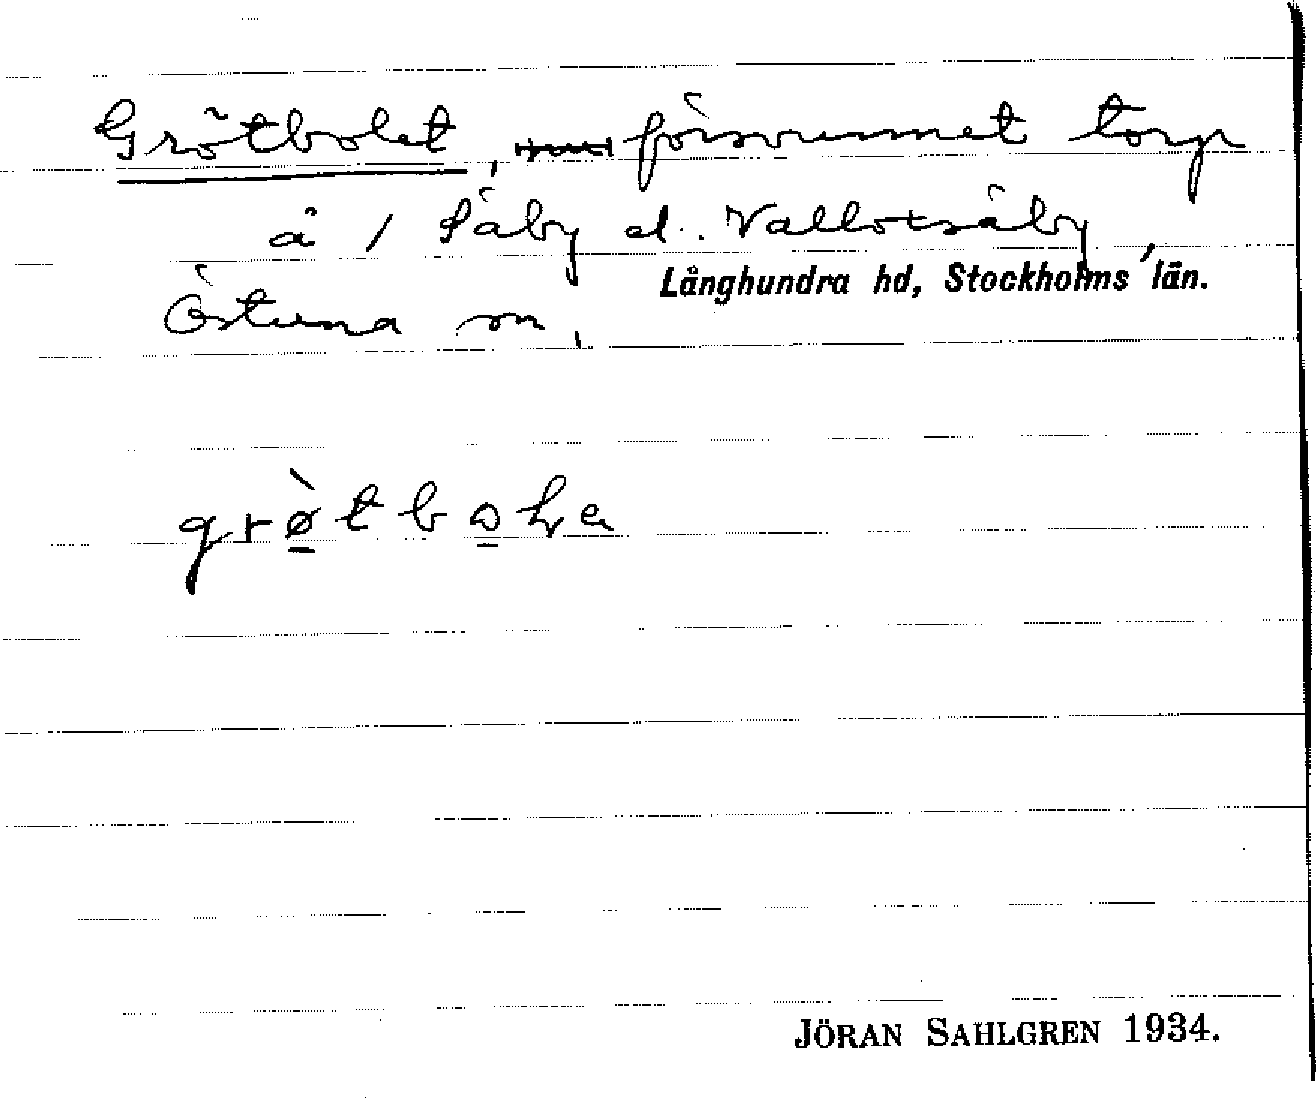 Grötbolet, försvunnet torp
å / Såby el. Vallotsåby,
Långhundra hd, Stockholms län.
Östuna sn,
JÖRAN SAHLGREN 1934.